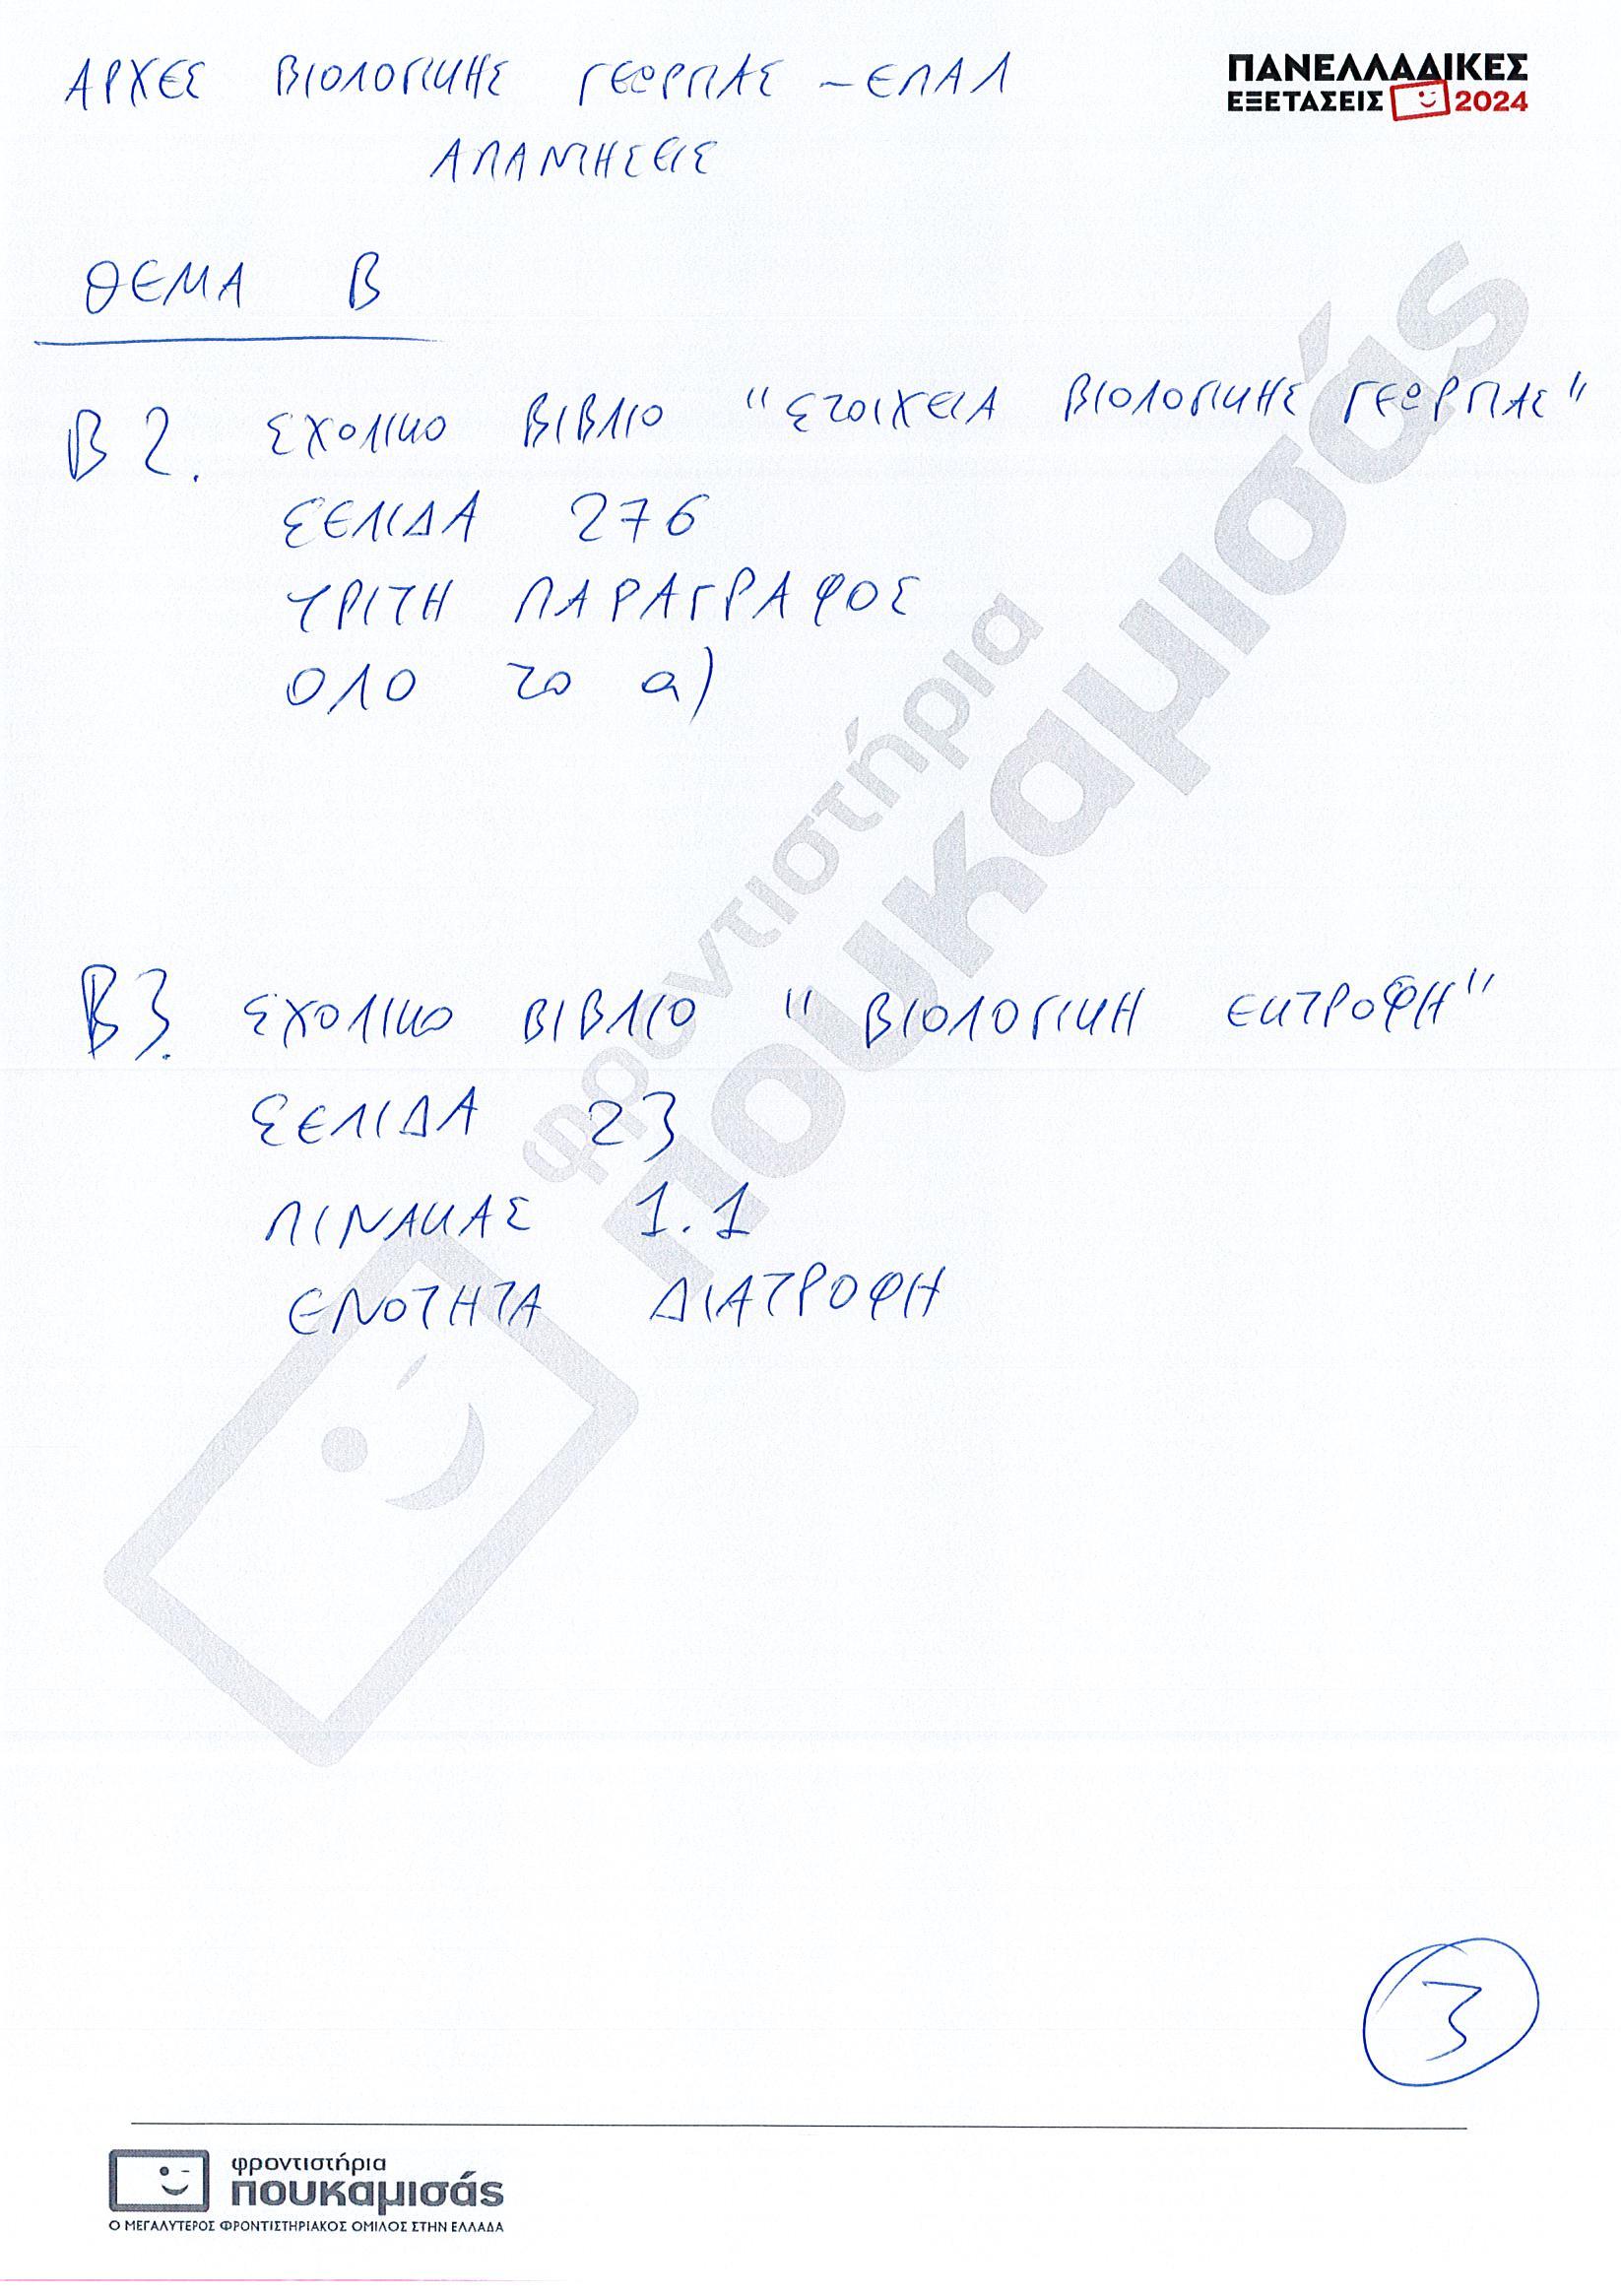 ΑΡΧΕΣ ΒΙΟΛΟΓΙΚΗΣ ΓΕΩΡΓΙΑΣ - ΕΠΑΛ
ΑΠΑΝΤΗΣΕΙΣ
ΠΑΝΕΛΛΑΔΙΚΕΣ
ΕΞΕΤΑΣΕΙΣ 2024
ΘΕΜΑ Β
Β2. ΣΧΟΛΙΚΟ ΒΙΒΛΙΟ "ΣΤΟΙΧΕΙΑ ΒΙΟΛΟΓΙΚΗΣ ΓΕΩΡΓΙΑΣ"
ΣΕΛΙΔΑ 276
ΤΡΙΤΗ ΠΑΡΑΓΡΑΦΟΣ
ΟΛΟ το α)
Β3. ΣΧΟΛΙΚΟ ΒΙΒΛΙΟ "ΒΙΟΛΟΓΙΚΗ ΕΚΤΡΟΦΗ"
ΣΕΛΙΔΑ 23
ΠΙΝΑΚΑΣ 1.1
ΕΝΟΤΗΤΑ ΔΙΑΤΡΟΦΗ
φροντιστήρια
πουκαμισάς
3
φροντιστήρια
πουκαμισάς
Ο ΜΕΓΑΛΥΤΕΡΟΣ ΦΡΟΝΤΙΣΤΗΡΙΑΚΟΣ ΟΜΙΛΟΣ ΣΤΗΝ ΕΛΛΑΔΑ